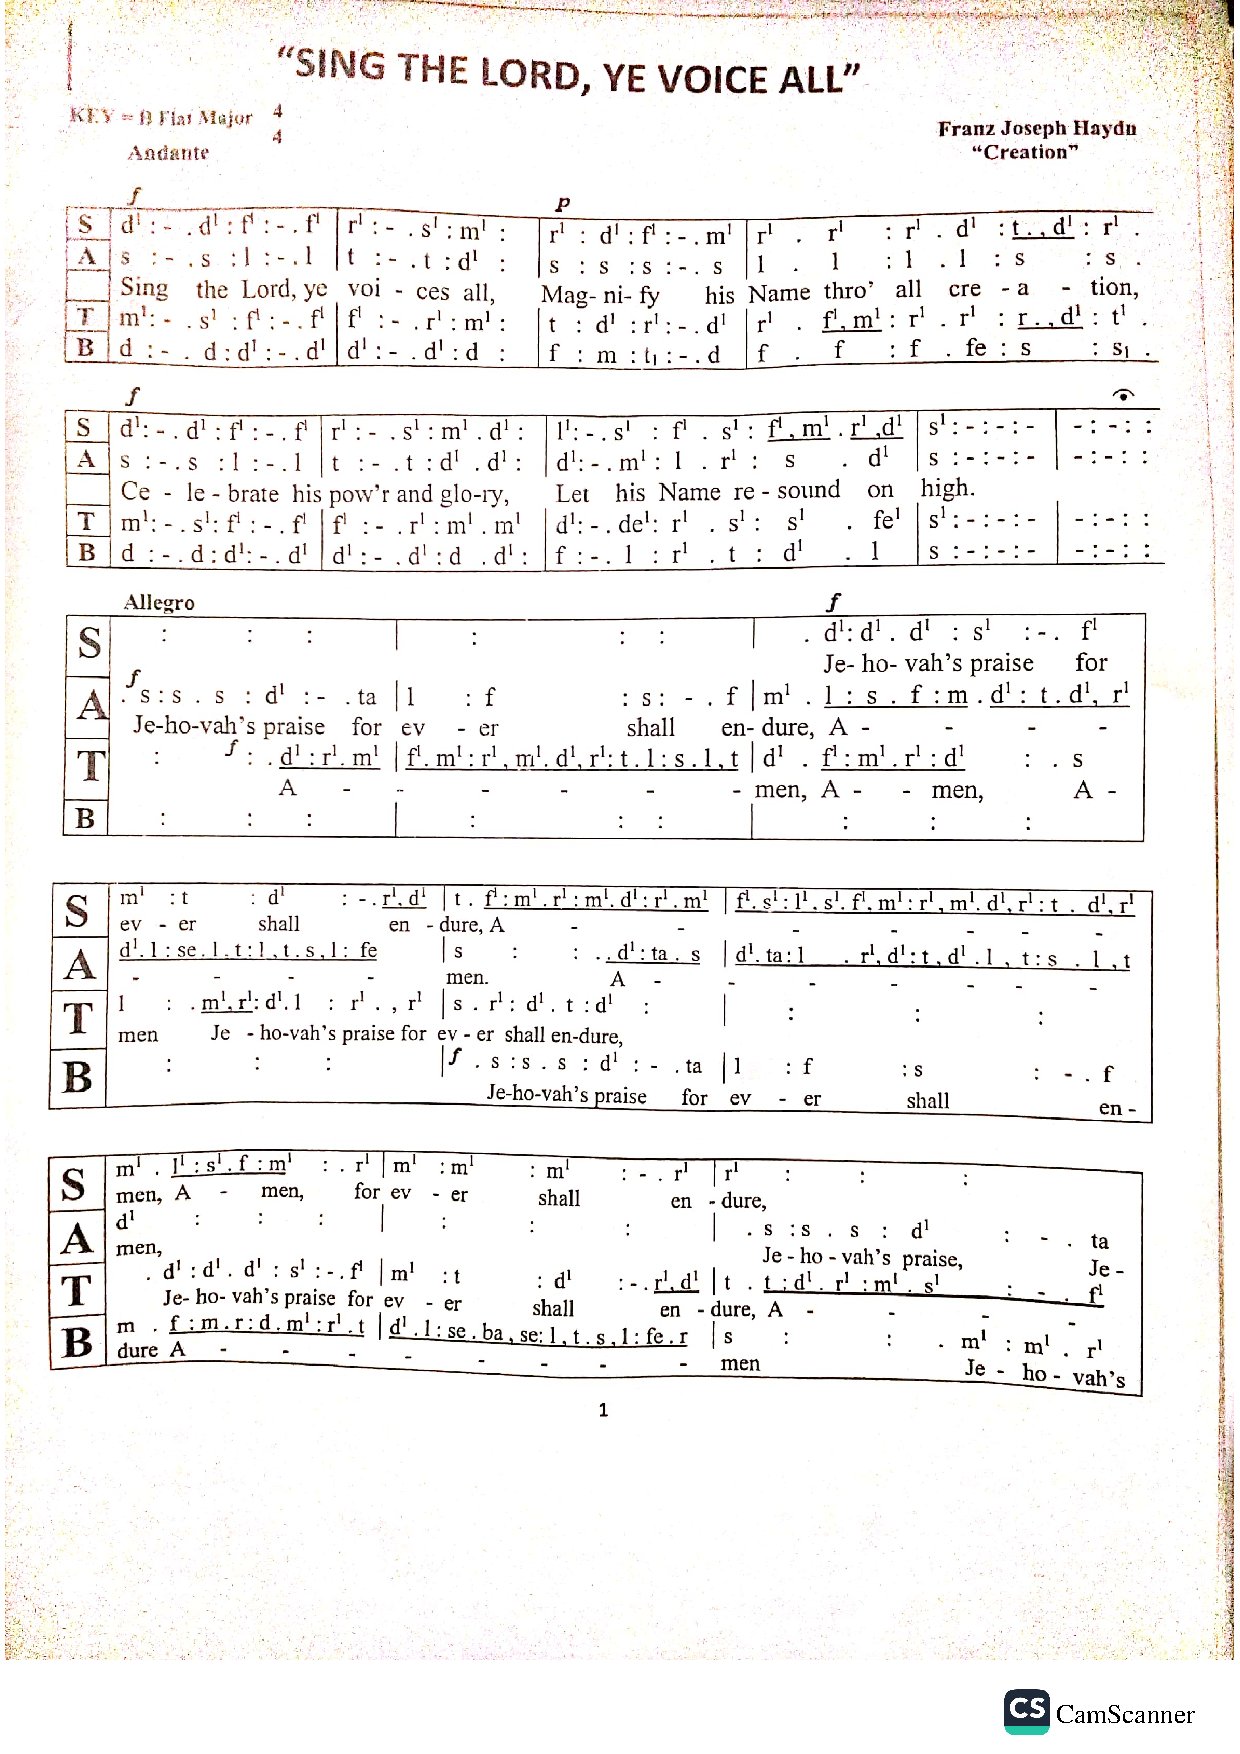 "SING THE LORD, YE VOICE ALL"
KEY = B Flat Major 4
4
Andante
Franz Joseph Haydn
"Creation"
f p
S d¹ : - . d¹ : f¹ : - . f¹ | r¹ : - . s¹ : m¹ : | r¹ : d¹ : f¹ : - . m¹ | r¹ . r¹ : r¹ . d¹ : t . , d¹ : r¹ .
A s : - . s : l : - . l | t : - . t : d¹ : | s : s : s : - . s | l . l : l . l : s : s .
Sing the Lord, ye voi - ces all, Mag- ni- fy his Name thro' all cre - a - tion,
T m¹: - . s¹ : f¹ : - . f¹ | f¹ : - . r¹ : m¹ : | t : d¹ : r¹ : - . d¹ | r¹ . f¹, m¹ : r¹ . r¹ : r . , d¹ : t¹ .
B d : - . d : d¹ : - . d¹ | d¹ : - . d¹ : d : | f : m : t₁ : - . d | f . f : f . fe : s : s₁ .
f
S d¹: - . d¹ : f¹ : - . f¹ | r¹ : - . s¹ : m¹ . d¹ : | l¹: - . s¹ : f¹ . s¹ : f¹, m¹ . r¹ ,d¹ | s¹ : - : - : - | - : - : :
A s : - . s : l : - . l | t : - . t : d¹ . d¹ : | d¹: - . m¹ : l . r¹ : s . d¹ | s : - : - : - | - : - : :
Ce - le - brate his pow'r and glo-ry, Let his Name re - sound on high.
T m¹: - . s¹: f¹ : - . f¹ | f¹ : - . r¹ : m¹ . m¹ | d¹: - . de¹: r¹ . s¹ : s¹ . fe¹ | s¹ : - : - : - | - : - : :
B d : - . d : d¹: - . d¹ | d¹ : - . d¹ : d . d¹ : | f : - . l : r¹ . t : d¹ . l | s : - : - : - | - : - : :
Allegro f
S : : : | : : : | . d¹: d¹ . d¹ : s¹ : - . f¹
Je- ho- vah's praise for
f
A . s : s . s : d¹ : - . ta | l : f : s : - . f | m¹ . l : s . f : m . d¹ : t . d¹, r¹
Je-ho-vah's praise for ev - er shall en- dure, A - - - -
T : f : . d¹ : r¹ . m¹ | f¹. m¹ : r¹ , m¹. d¹, r¹: t . l : s . l , t | d¹ . f¹ : m¹ . r¹ : d¹ : . s
A - - - - - - men, A - - men, A -
B : : : | : : : | : : :
S m¹ : t : d¹ : - . r¹. d¹ | t . f¹ : m¹ . r¹ : m¹. d¹ : r¹ . m¹ | f¹. s¹ : l¹ , s¹. f¹, m¹ : r¹ , m¹. d¹, r¹ : t . d¹, r¹
ev - er shall en - dure, A - - - - - -
A d¹. l : se . l . t : l , t . s , l : fe | s : : . . d¹ : ta . s | d¹. ta : l . r¹, d¹ : t , d¹ . l , t : s . l , t
- - - - men. A - - - - - -
T l : . m¹, r¹: d¹. l : r¹ . , r¹ | s . r¹ : d¹ . t : d¹ : | : : :
men Je - ho-vah's praise for ev - er shall en-dure,
B : : : | f . s : s . s : d¹ : - . ta | l : f : s : - . f
Je-ho-vah's praise for ev - er shall en -
S m¹ . l¹ : s¹ . f : m¹ : . r¹ | m¹ : m¹ : m¹ : - . r¹ | r¹ : : :
men, A - men, for ev - er shall en - dure,
A d¹ : : : | : : : | . s : s . s : d¹ : - . ta
men, Je - ho - vah's praise, Je -
T . d¹ : d¹ . d¹ : s¹ : - . f¹ | m¹ : t : d¹ : - . r¹, d¹ | t . t : d¹ . r¹ : m¹ . s¹ : - . f¹
Je- ho- vah's praise for ev - er shall en - dure, A - - - -
B m . f : m . r : d . m¹ : r¹ . t | d¹ . l : se . ba , se: l , t . s , l : fe . r | s : : . m¹ : m¹ . r¹
dure A - - - - - - - men Je - ho - vah's
1
CS CamScanner